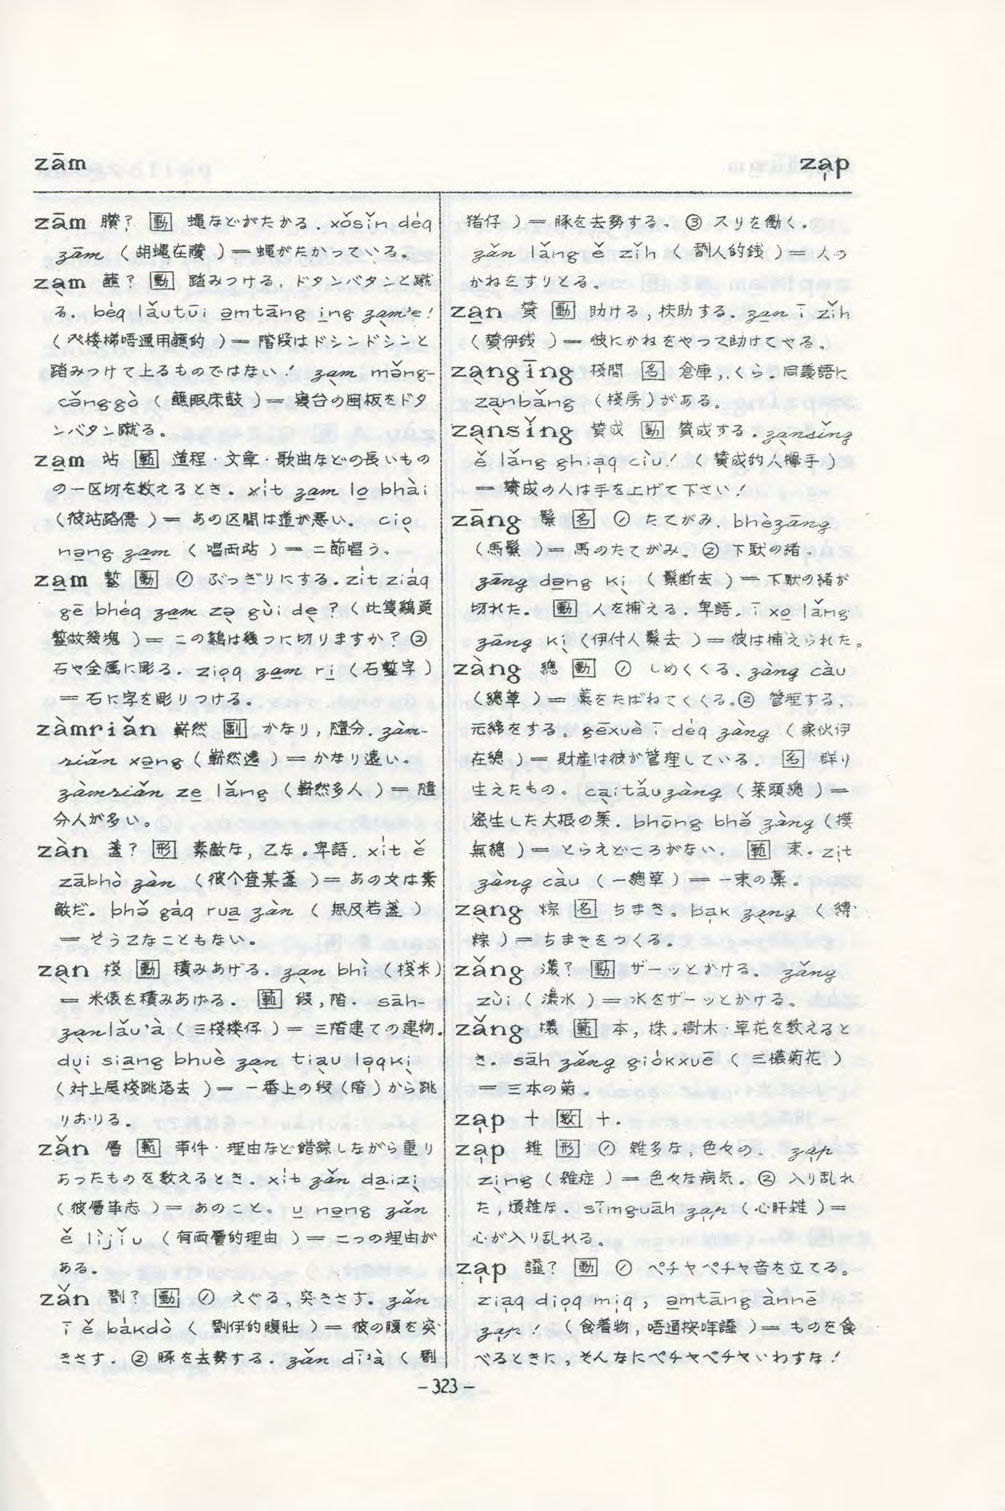 zām
za̍p
zām 臢? 動 蠅などがたかる. xǒsǐn de̍q
zām (胡蠅在臢)= 蠅がたかっている。
za̱m 蘸? 動 踏みつける, ドタンバタンと蹴
る. be̍q lǎutūi a̱mtāng i̱ng za̱m'e!
(癶楼梯唔通用蘸的)= 階段はドシンドシンと
踏みつけて上るものではない! za̱m mǎng-
cǎnggò (蘸眠床鼓)= 寝台の囲板をドタ
ンバタン蹴る。
za̱m 站 範 道程・文章・歌曲などの長いもの
の一区切を数えるとき. xit za̱m lo̱ bhài
(彼站路僫)= あの区間は道が悪い. cio̱
no̱ng za̱m (唱両站)= 二節唱う.
za̱m 鏨 動 ① ぶっぎりにする. zit ziáq
gē bhéq za̱m zə̱ gùi de̱? (此隻鷄覓
鏨做幾塊)= この鷄は幾つに切りますか? ②
石や金属に彫る. zio̍q za̱m ri̱ (石鏨字)
= 石に字を彫りつける.
zàmriǎn 嶄然 副 かなり, 隨分. zàm-
riǎn xəng (嶄然遠)= かなり遠い.
zàmriǎn ze̱ lǎng (嶄然多人)= 隨
分人が多い。
zàn 盞? 形 素敵な, 乙な. 卑語. xit ě
zābhò zàn (彼个查某盞)= あの女は素
敵だ. bhǒ gáq rua̱ zàn (無及若盞)
= そう乙なこともない.
za̱n 棧 動 積みあげる. za̱n bhì (棧米)
= 米俵を積みあげる. 範 段, 階. sāh-
za̱nlǎu'à (三棧楼仔)= 三階建ての建物.
du̱i siang bhuè za̱n tiàu lo̍qki̱
(対上尾棧跳洛去)= 一番上の段(階)から跳
りおりる.
zǎn 層 範 事件・理由など錯綜しながら重り
あったものを数えるとき. xit zǎn da̱izì
(彼層事志)= あのこと. u̱ no̱ng zǎn
ě lìjǐu (有両層的理由)= 二つの理由が
ある.
zǎn 劗? 動 ① えぐる, 突きさす. zǎn
ī ě bákdò (劗伊的腹肚)= 彼の腹を突
きさす. ② 豚を去勢する. zǎn dī'à (劗
猪仔)= 豚を去勢する. ③ スリを働く.
zǎn lǎng ě zǐh (劗人的銭)= 人の
かねをすりとる。
za̱n 賛 動 助ける, 扶助する. za̱n ī zǐh
(賛伊銭)= 彼にかねをやって助けてやる。
za̱ngīng 棧間 名 倉庫, くら. 同義語に
za̱nbǎng (棧房)がある.
za̱nsǐng 賛成 動 賛成する. za̱nsǐng
ě lǎng ghia̍q cìu! (賛成的人攑手)
= 賛成の人は手を上げて下さい!
zāng 鬃 名 ① たてがみ. bhèzāng
(馬鬃)= 馬のたてがみ. ② 下駄の緒.
zāng də̱ng ki̱ (鬃断去)= 下駄の緒が
切れた. 動 人を捕える. 卑語. ī xo̱ lǎng
zāng ki̱ (伊付人鬃去)= 彼は捕えられた。
zàng 總 動 ① しめくくる. zàng càu
(總草)= 藁をたばねてくくる. ② 管理する,
元締をする. gēxuè ī de̍q zàng (家伙伊
在總)= 財産は彼が管理している. 名 群り
生えたもの. ca̱itǎuzàng (菜頭總)=
密生した大根の葉. bhōng bhǒ zàng (摸
無總)= とらえどころがない. 範 束. zit
zàng càu (一總草)= 一束の藁.
za̱ng 粽 名 ちまき. ba̍k za̱ng (縛
粽)= ちまきをつくる.
zǎng 灇? 動 ザーッとかける. zǎng
zùi (灇水)= 水をザーッとかける.
zǎng 欉 範 本, 株. 樹木・草花を数えると
き. sāh zǎng giókxuē (三欉菊花)
= 三本の菊.
za̍p 十 数 十.
za̍p 雑 形 ① 雑多な, 色々の. za̍p
zi̱ng (雑症)= 色々な病気. ② 入り乱れ
た, 煩雑な. sīmguāh za̍p (心肝雑)=
心が入り乱れる.
za̍p 動 ① ペチャペチャ音を立てる.
zia̍q dio̍q mi̍q, a̱mtāng ànnē
za̍p! = ものを食
べるときに, そんなにペチャペチャいわすな!
- 323 -